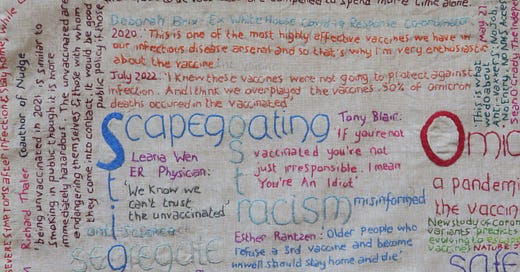 are compelled to spend more time alone.
Deborah Brix Ex White House Covid 19 Response Co-ordinator
2020. 'This is one of the most highly effective vaccines we have in
our infectious disease arsenal and so that's why I'm very enthusiastic
about the vaccine'.
July 2022. 'I knew these vaccines were not going to protect against
infection. And I think we overplayed the vaccines. 50% of omicron
deaths occured in the vaccinated'
SEVERE SYMPTOMS after infection & stay home, while
M Richard Thaler Coauthor of Nudge
'being unvaccinated in 2021 is similar to
smoking in public though it is more
immediately hazardous. The unvaccinated are
endangering themselves & those with whom
they come into contact. it would be good
public policy if those
Scapegoating
Stigma
Ostracism
Leana Wen
ER Physician:
'We Know we
can't trust
the unvaccinated'
anti science
Tony Blair:
If you're not
vaccinated you're not
just irresponsible. I mean
You're An Idiot'
misinformed
Esther Rantzen: 'Older people who
refuse a 3rd vaccine and become
unwell should stay home and die'
May 21
'This is what
we do about
Anti-vaxxers: No Job.
No Entry. No NHS Access
Sean O'Grady The Independent
Omic
a pandemi
the vaccin
New study of coron
variants predicts
evolving to escape
vaccines NATURE
safe